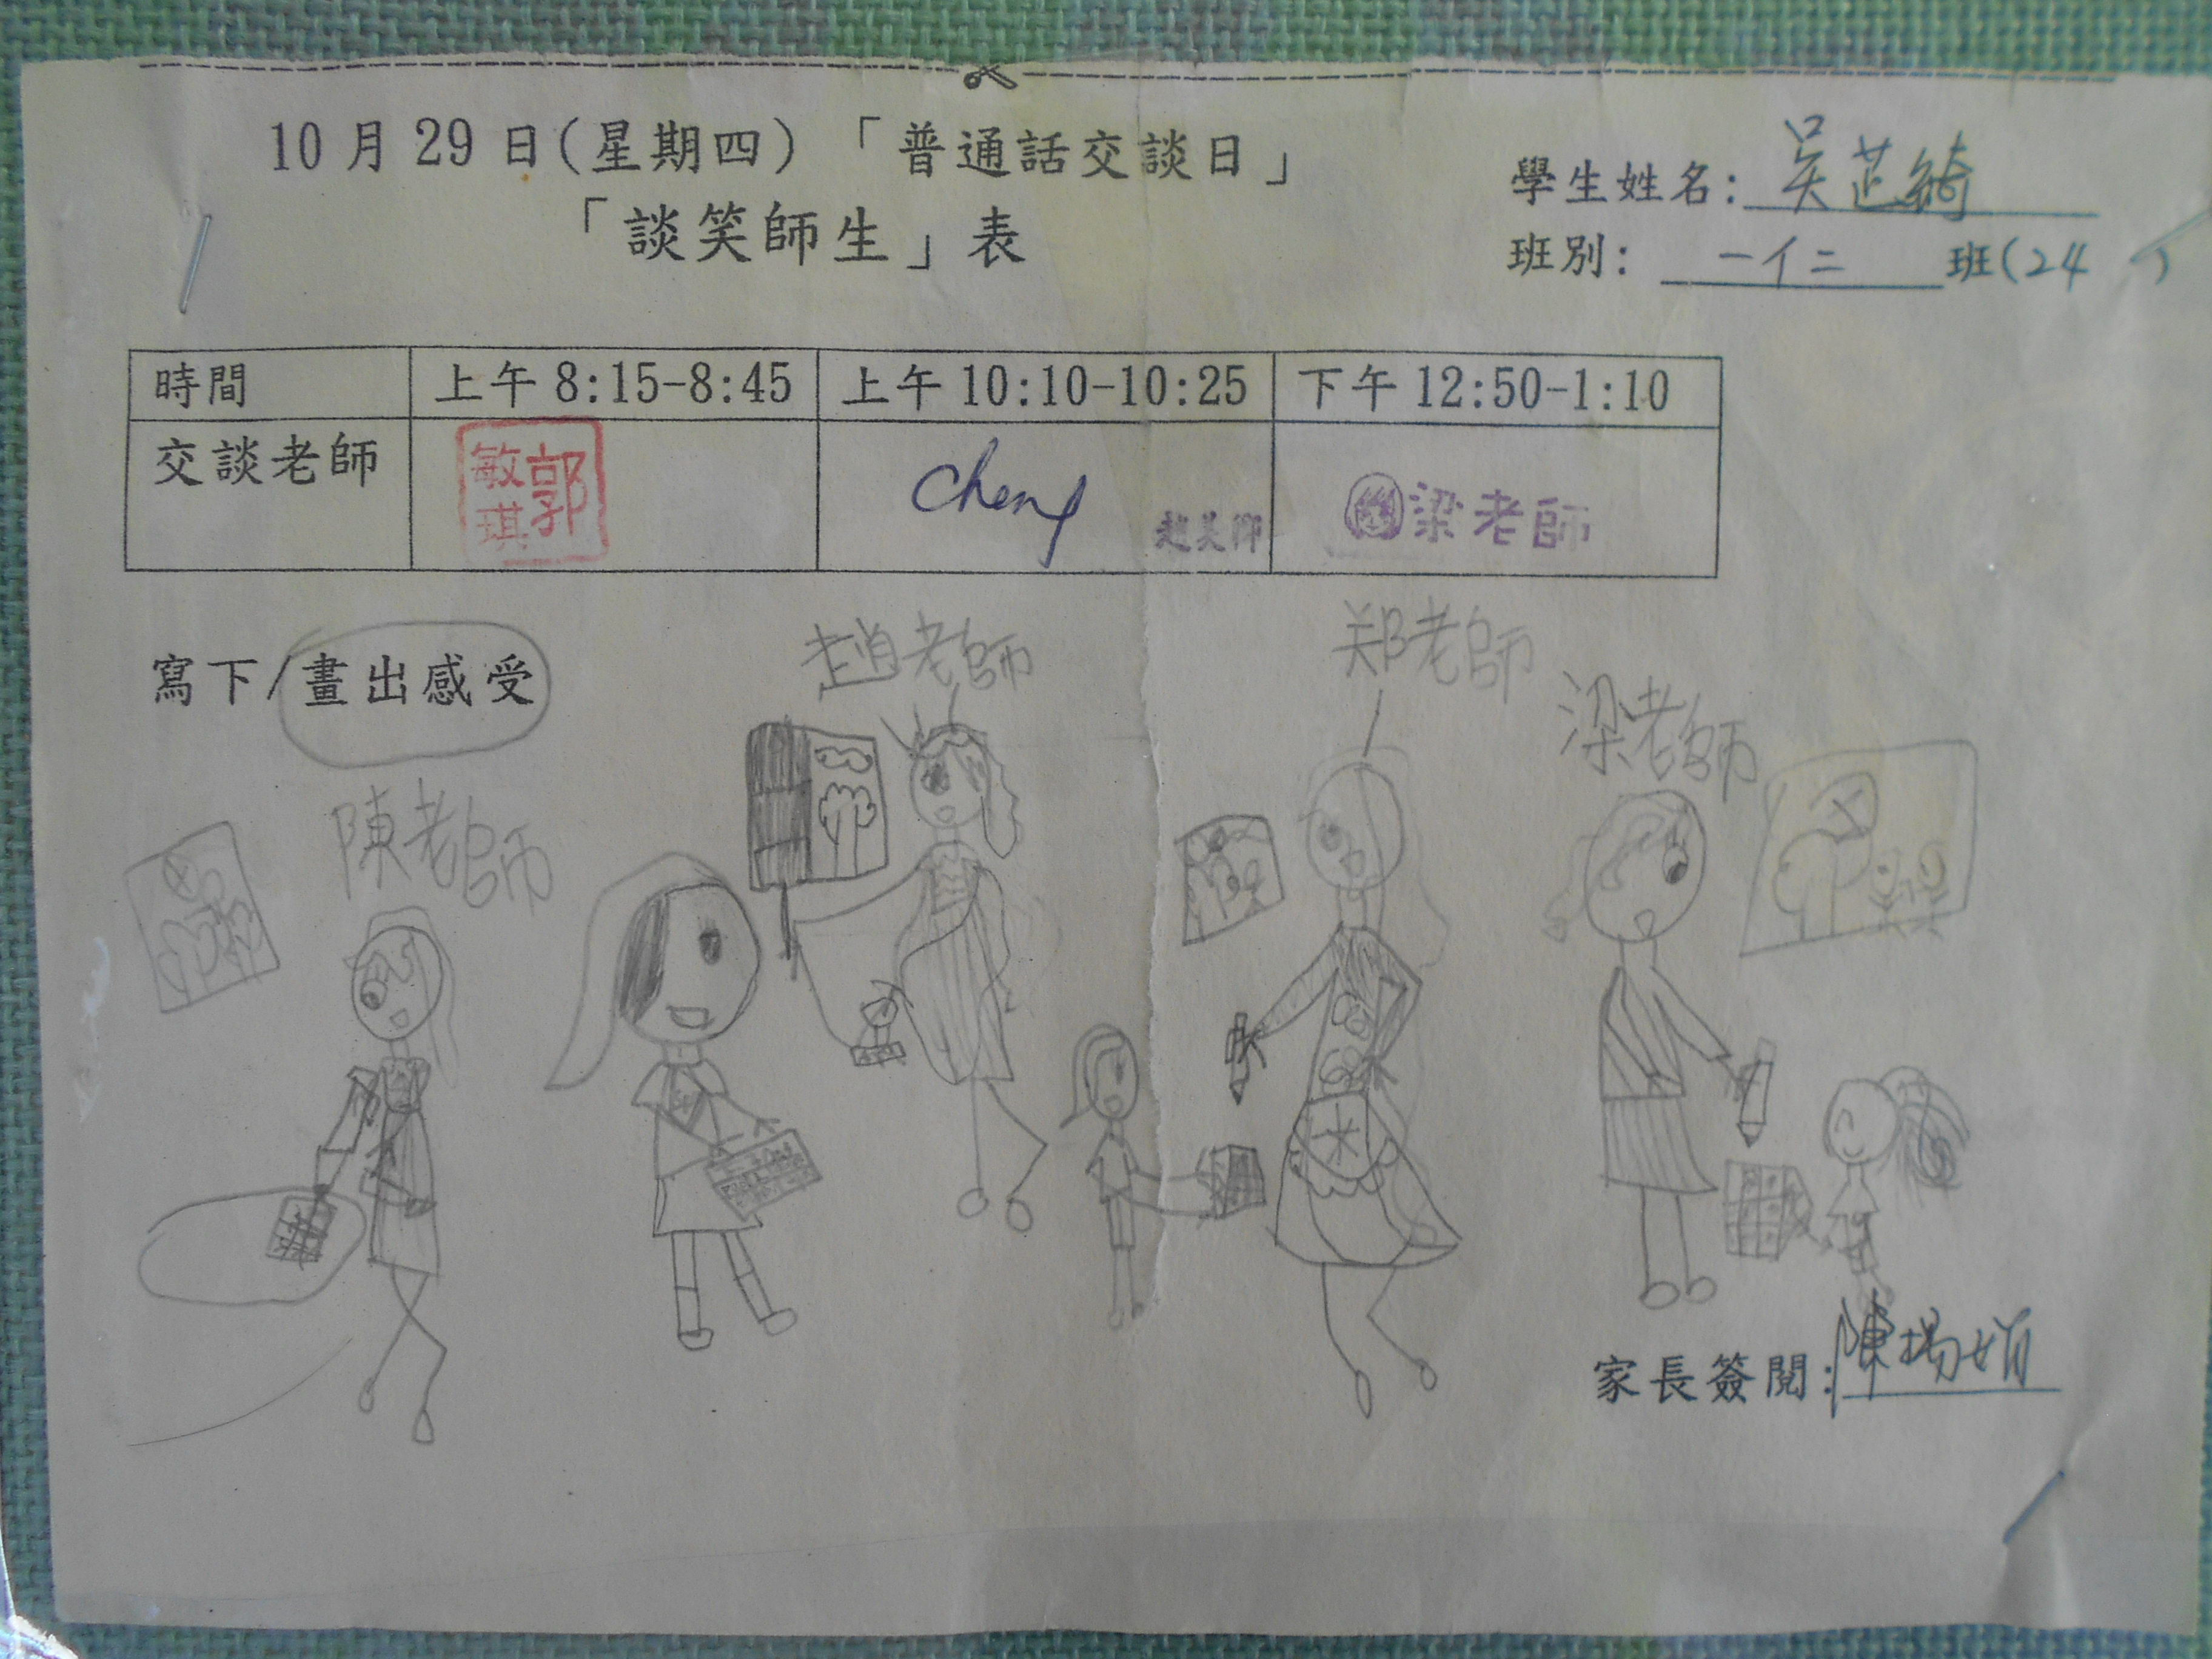 10月29日(星期四)「普通話交談日」
「談笑師生」表
學生姓名:吳芷綺
班別: 一仁 班(24 )
時間 上午8:15-8:45 上午10:10-10:25 下午12:50-1:10
交談老師 郭敏琪 Cheng 梁老師
寫下/畫出感受
趙老師
郑老師
梁老師
陳老師
家長簽閱:陳楊娟